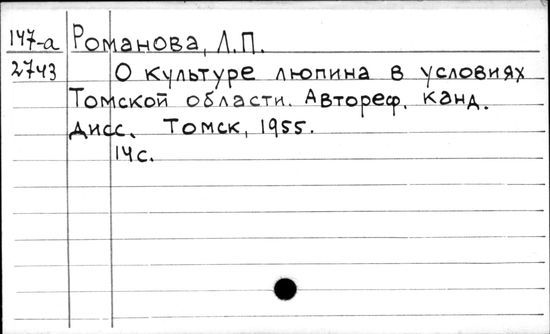 147-а Романова, Л.П.
2743 О культуре люпина в условиях
Томской области. Автореф. канд.
дисс. Томск, 1955.
14с.